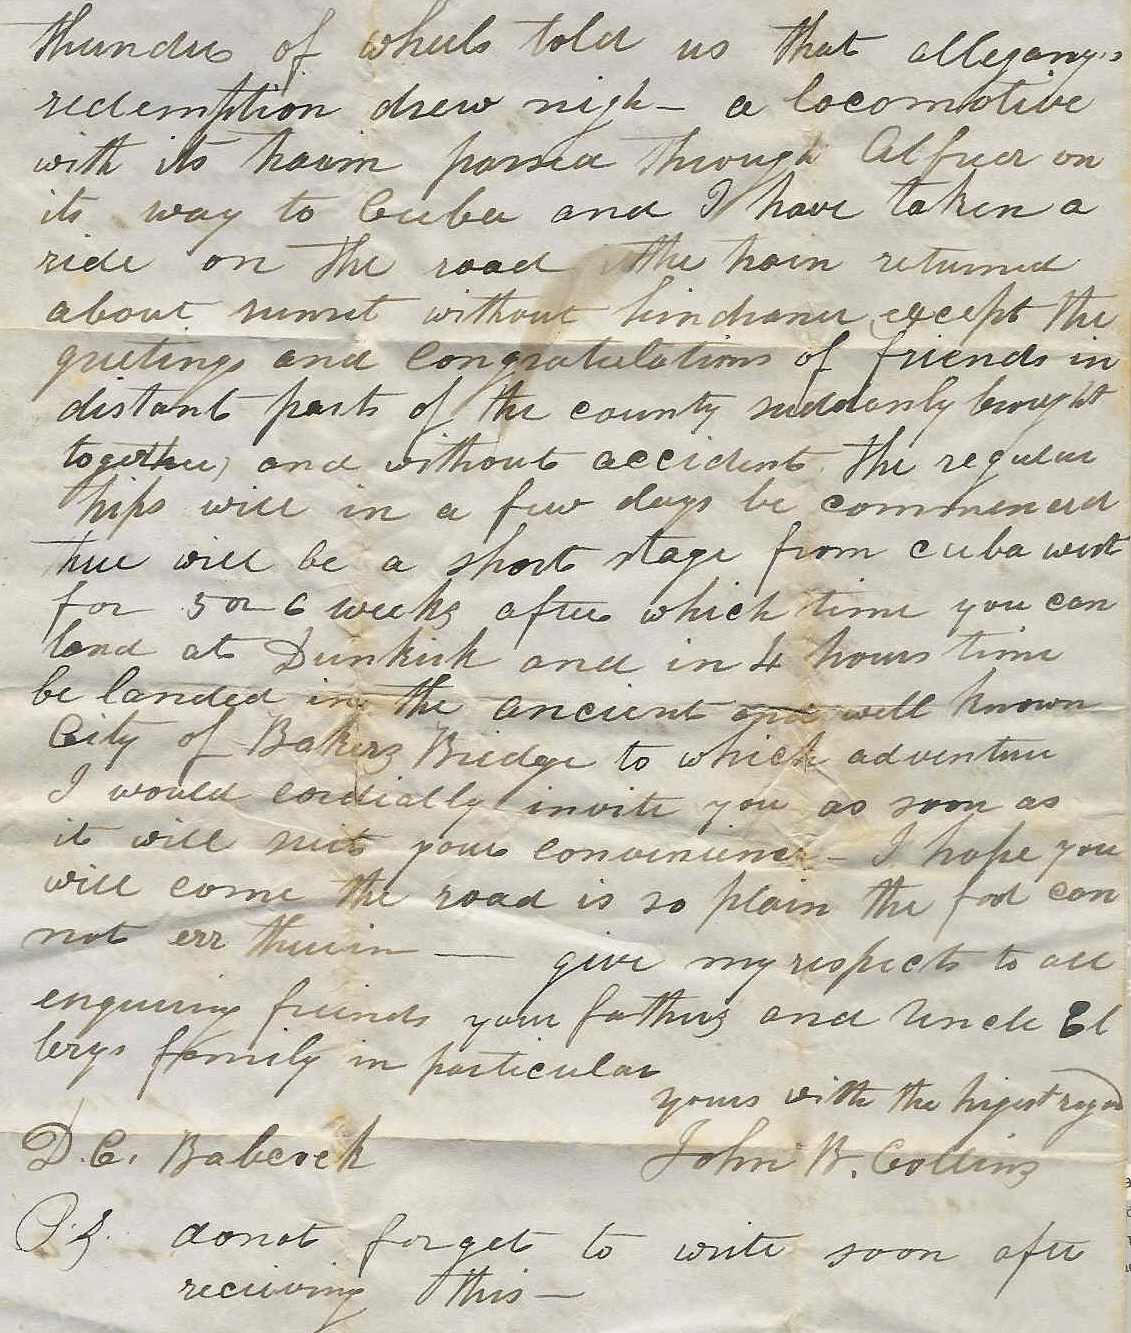 thunder of wheels told us that allegany's
redemption drew nigh — a locomotive
with its train passed through Alfred on
its way to Cuba and I have taken a
ride on the road the train returned
about sunset without hindrance except the
greetings and congratulations of friends in
distant parts of the county suddenly brought
together, and without accident. The regular
trips will in a few days be commenced
there will be a short stage from cuba west
for 5 or 6 weeks after which time you can
land at Dunkirk and in 4 hours time
be landed in the ancient and well known
City of Bakers Bridge to which adventure
I would cordially invite you as soon as
it will suit your convenience — I hope you
will come the road is so plain the fool can
not err therein — give my respects to all
enquiring friends your fathers and Uncle El
brys family in particular
yours with the higest regard
D.C. Babcock John B. Collins
P.S. donot forget to write soon after
receiving this —